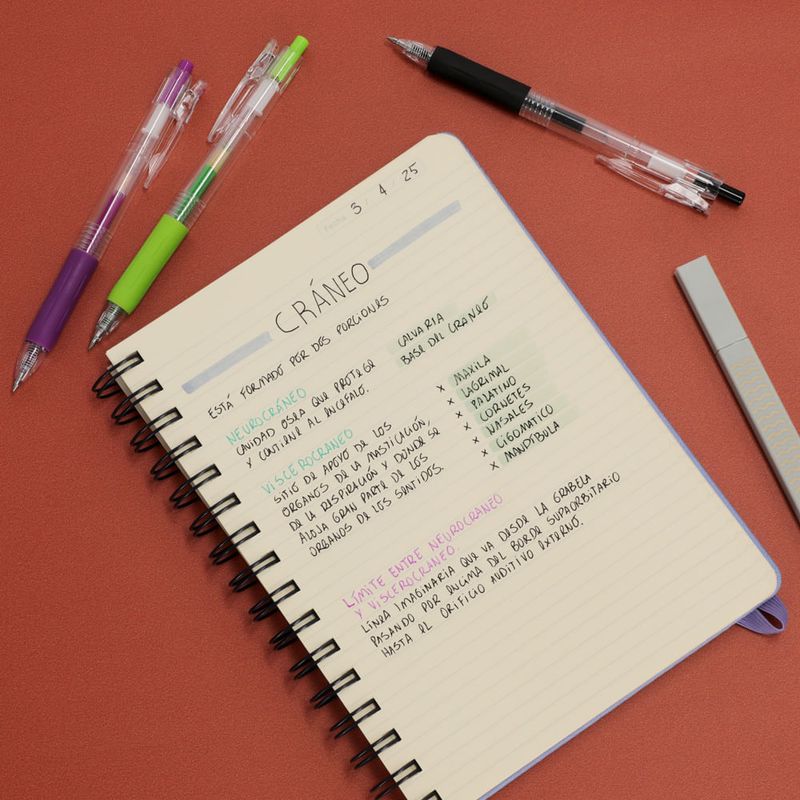 Fecha 3 / 4 / 25
CRÁNEO
ESTÁ FORMADO POR DOS PORCIONES
NEUROCRÁNEO
CAVIDAD OSEA QUE PROTEGE
Y CONTIENE AL ENCEFALO.
CALVARIA
BASE DEL CRANEO
VISCEROCRANEO
SITIO DE APOYO DE LOS
ORGANOS DE LA MASTICACIÓN,
DE LA RESPIRACIÓN Y DONDE SE
ALOJA GRAN PARTE DE LOS
ORGANOS DE LOS SENTIDOS.
x MAXILA
x LAGRIMAL
x PALATINO
x CORNETES
x NASALES
x CIGOMATICO
x MANDÍBULA
LÍMITE ENTRE NEUROCRANEO
Y VISCEROCRANEO.
LÍNEA IMAGINARIA QUE VA DESDE LA GRABELA
PASANDO POR ENCIMA DEL BORDE SUPAORBITARIO
HASTA EL ORIFICIO AUDITIVO EXTERNO.